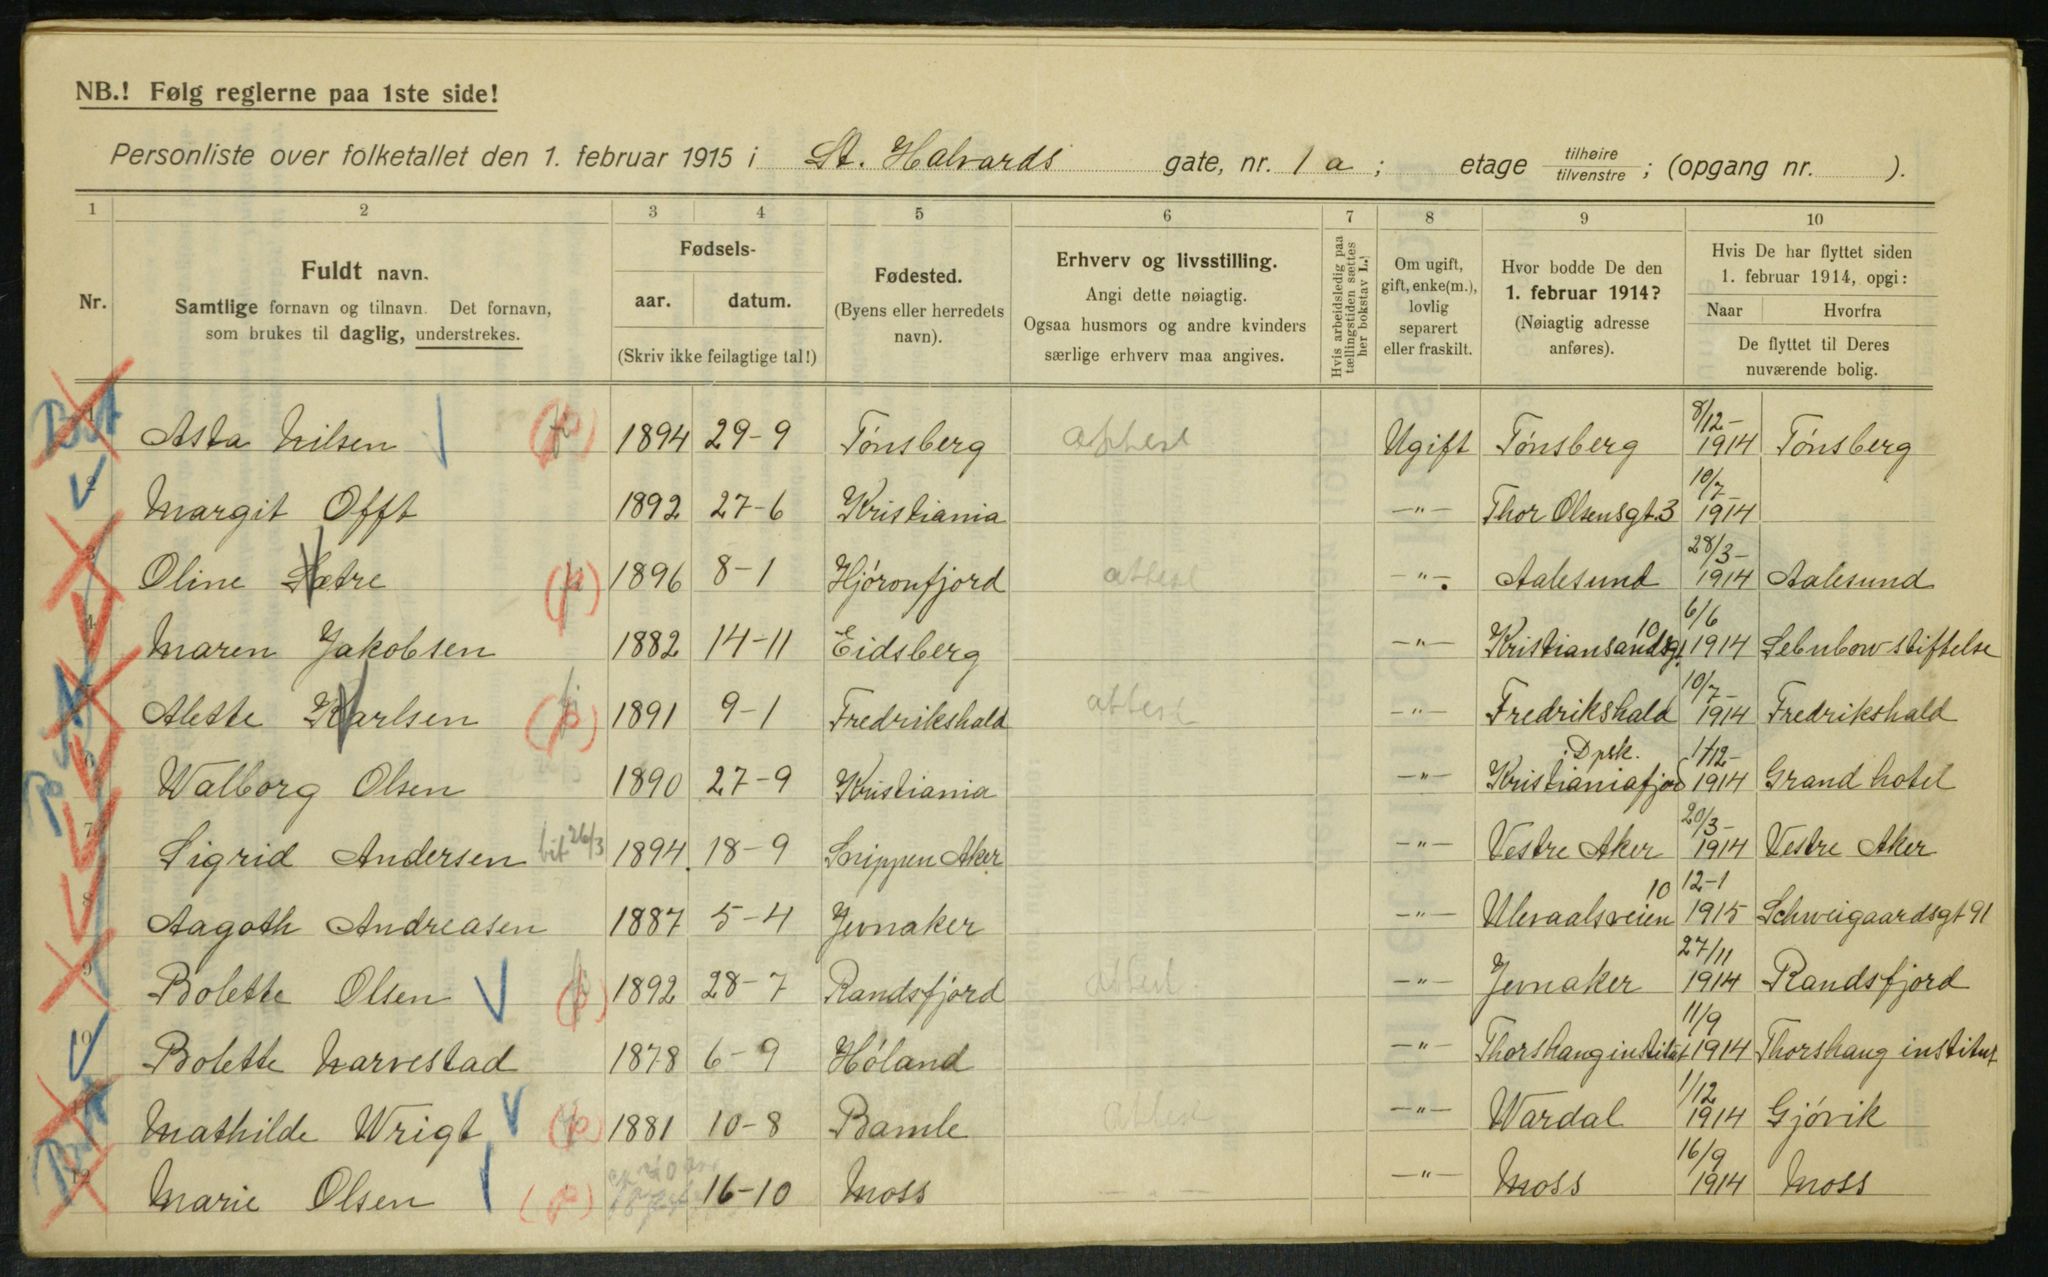 NB.! Følg reglerne paa 1ste side!
Personliste over folketallet den 1. februar 1915 i St. Halvards gate, nr. 1 a ; etage tilhøire / tilvenstre ; (opgang nr. ).
1 2 3 4 5 6 7 8 9 10
Nr.
Fuldt navn.
Samtlige fornavn og tilnavn. Det fornavn,
som brukes til daglig, understrekes.
Fødsels-
aar. datum.
(Skriv ikke feilagtige tal!)
Fødested.
(Byens eller herredets
navn).
Erhverv og livsstilling.
Angi dette nøiagtig.
Ogsaa husmors og andre kvinders
særlige erhverv maa angives.
Hvis arbeidsledig paa
tællingstiden sættes
her bokstav L.
Om ugift,
gift, enke(m.),
lovlig
separert
eller fraskilt.
Hvor bodde De den
1. februar 1914?
(Nøiagtig adresse
anføres).
Hvis De har flyttet siden
1. februar 1914, opgi:
Naar Hvorfra
De flyttet til Deres
nuværende bolig.
1 Asta Nilsen (p) 1894 29-9 Tønsberg attest Ugift Tønsberg 8/12- 1914 Tønsberg
2 Margit Offt 1892 27-6 Kristiania -"- Thor Olsensgt. 3 10/7- 1914
3 Oline Sætre (p) 1896 8-1 Hjøronfjord attest -"- Aalesund 28/3- 1914 Aalesund
4 Maren Jakobsen 1882 14-11 Eidsberg -"- Kristiansandsg. 10 6/6 1914
5 Alette Karlsen (p) 1891 9-1 Fredrikshald attest -"- Fredrikshald 10/7- 1914 Fredrikshald
6 Walborg Olsen 1890 27-9 Kristiania -"- Kristianiafjord 1/12- 1914 Grand hotel
7 Sigrid Andersen 26/3 1894. 18-9 Snippen Aker -"- Vestre Aker 20/3- 1914 Vestre Aker
8 Aagoth Andreasen 1887 5-4 Jevnaker -"- Ulevaalsveien 10 12-1 1915 Schweigaardsgt 91
9 Bolette Olsen (p) 1892 28-7 Randsfjord attest -"- Jevnaker 27/11 1914 Randsfjord
10 Bolette Narvestad 1878 6-9 Høland -"- Thorshaug institut 11/9 1914 Thorshaug institut
11 Mathilde Wrigt (p) 1881 10-8 Bamle attest -"- Wardal 1/12 1914 Gjøvik
12 Marie Olsen (p) 16-10 Moss -"- Moss 16/9 1914 Moss